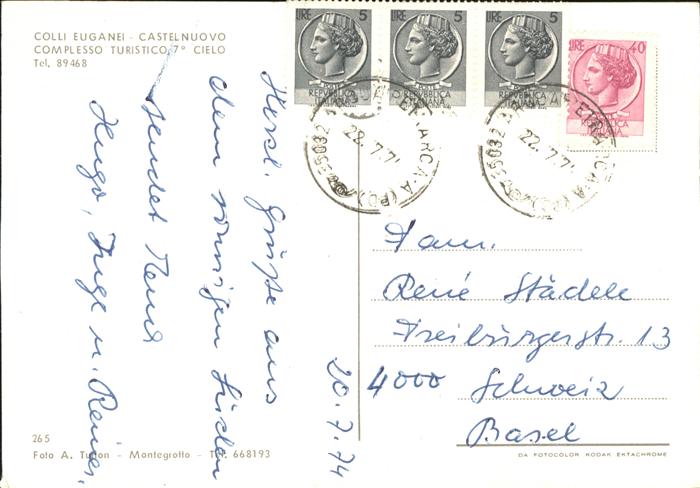 COLLI EUGANEI - CASTELNUOVO
COMPLESSO TURISTICO 7° CIELO
Tel. 89468
Herzl. Grüße aus
dem sonnigen Süden
sendet Euch
Hugo, Inge u. Reiner.
20.7.74
LIRE 5
REPVBBLICA
ITALIANA
LIRE 5
REPVBBLICA
ITALIANA
LIRE 5
REPVBBLICA
ITALIANA
LIRE 40
REPVBBLICA
ITALIANA
35032 ARQUA PETRARCA (PD)
22.7.74
35032 ARQUA PETRARCA (PD)
22.7.74
Fam.
René Städele
Freiburgerstr. 13
4000 Schweiz
Basel
265
Foto A. Turlon - Montegrotto - Tel. 668193
DA FOTOCOLOR KODAK EKTACHROME